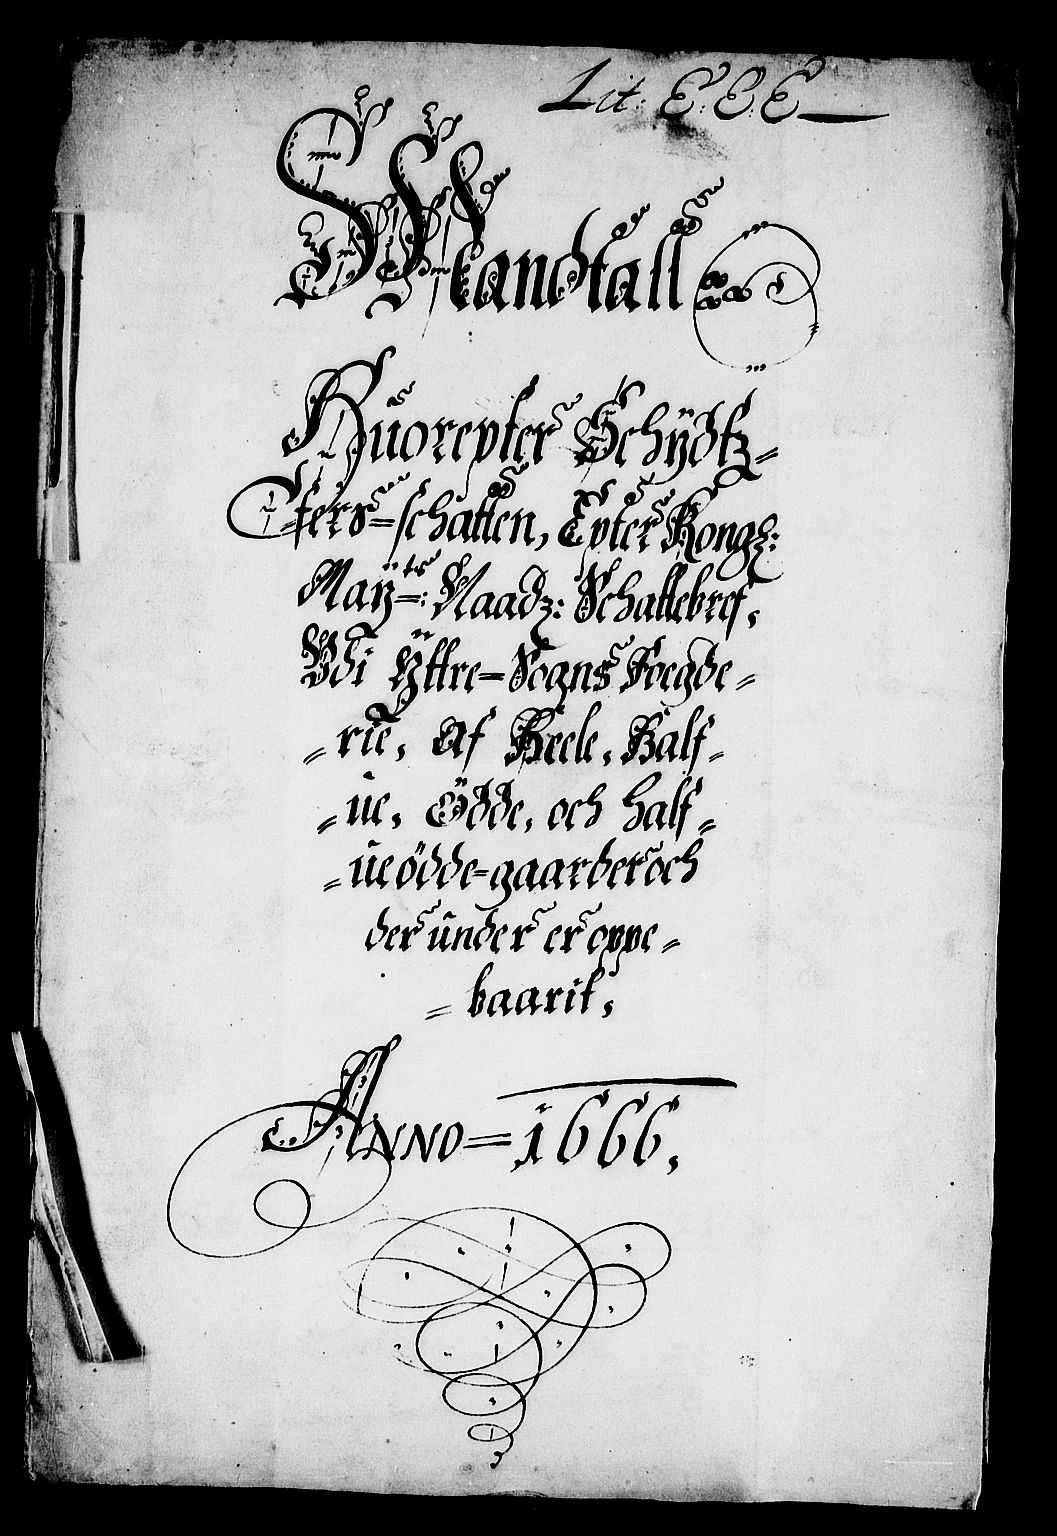 Lit: E. E. E
Mandtall
Huorepter Schÿdtz-
fers-schatten, Epter Kongz:
Maÿtz: Naadz: Schattebref,
Udi Ÿttre-Sogns Foegde-
-rie, Af Heele, Half-
-ue, Ödde, och half-
-ueödde-gaarder och
der under er oppe-
-baarit,
ANNO-1666,